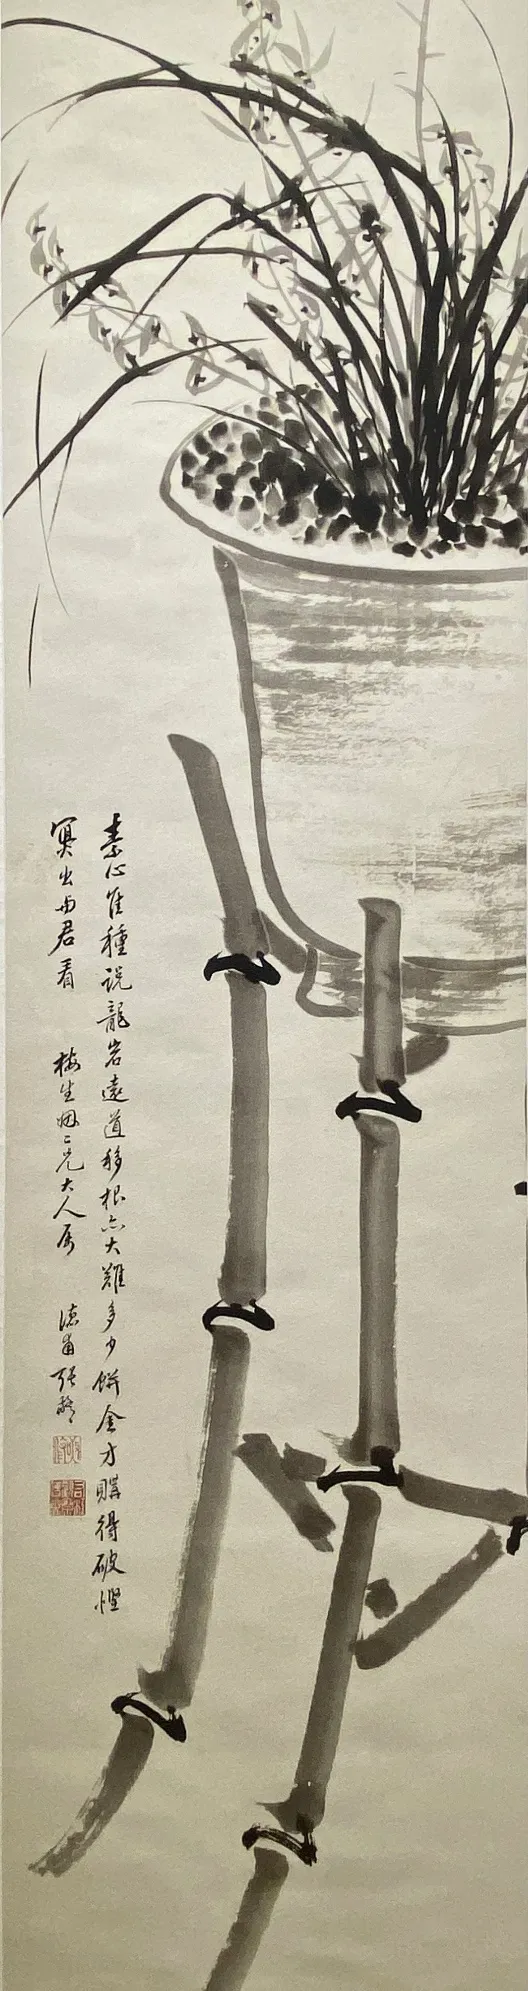 素心佳種説龍岩遠道移根亦大難多少餅金才購得破慳
寫出与君看
梅生姻二兄大人属
張琴